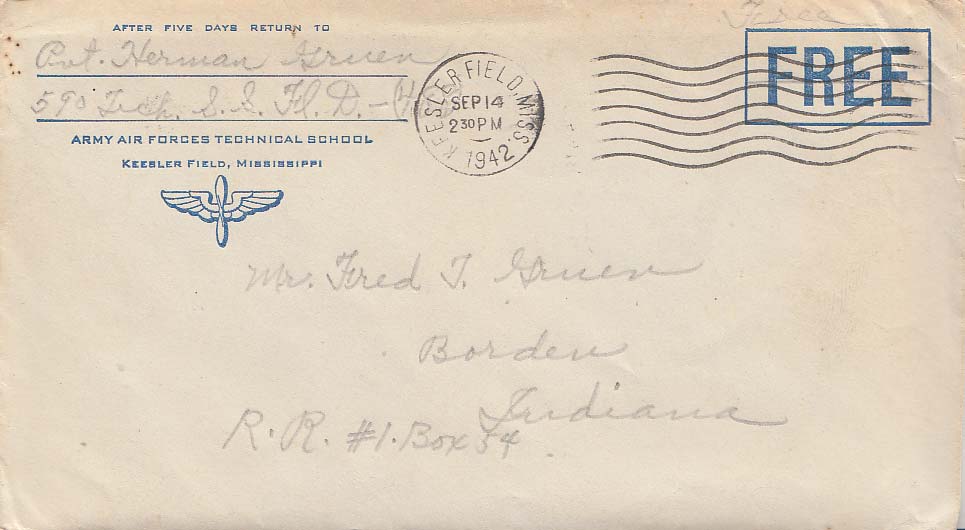 AFTER FIVE DAYS RETURN TO
Pvt. Herman Gruen
590 Tech. S. S. Fl. D. -
ARMY AIR FORCES TECHNICAL SCHOOL
KEESLER FIELD, MISSISSIPPI
KEESLER FIELD, MISS.
SEP 14
2 30 PM
1942
Free
FREE
Mr. Fred T. Gruen
Borden
Indiana
R. R. #1. Box 54